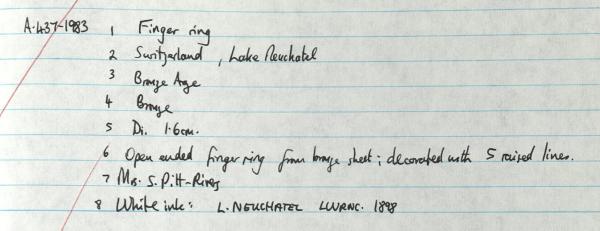 A.437-1983 1 Finger ring
2 Switzerland, Lake Neuchatel
3 Bronze Age
4 Bronze
5 Di. 1.6cm.
6 Open ended finger ring from bronze sheet; decorated with 5 raised lines.
7 Mrs. S. Pitt-Rivers
8 White ink: L. NEUCHATEL 1898